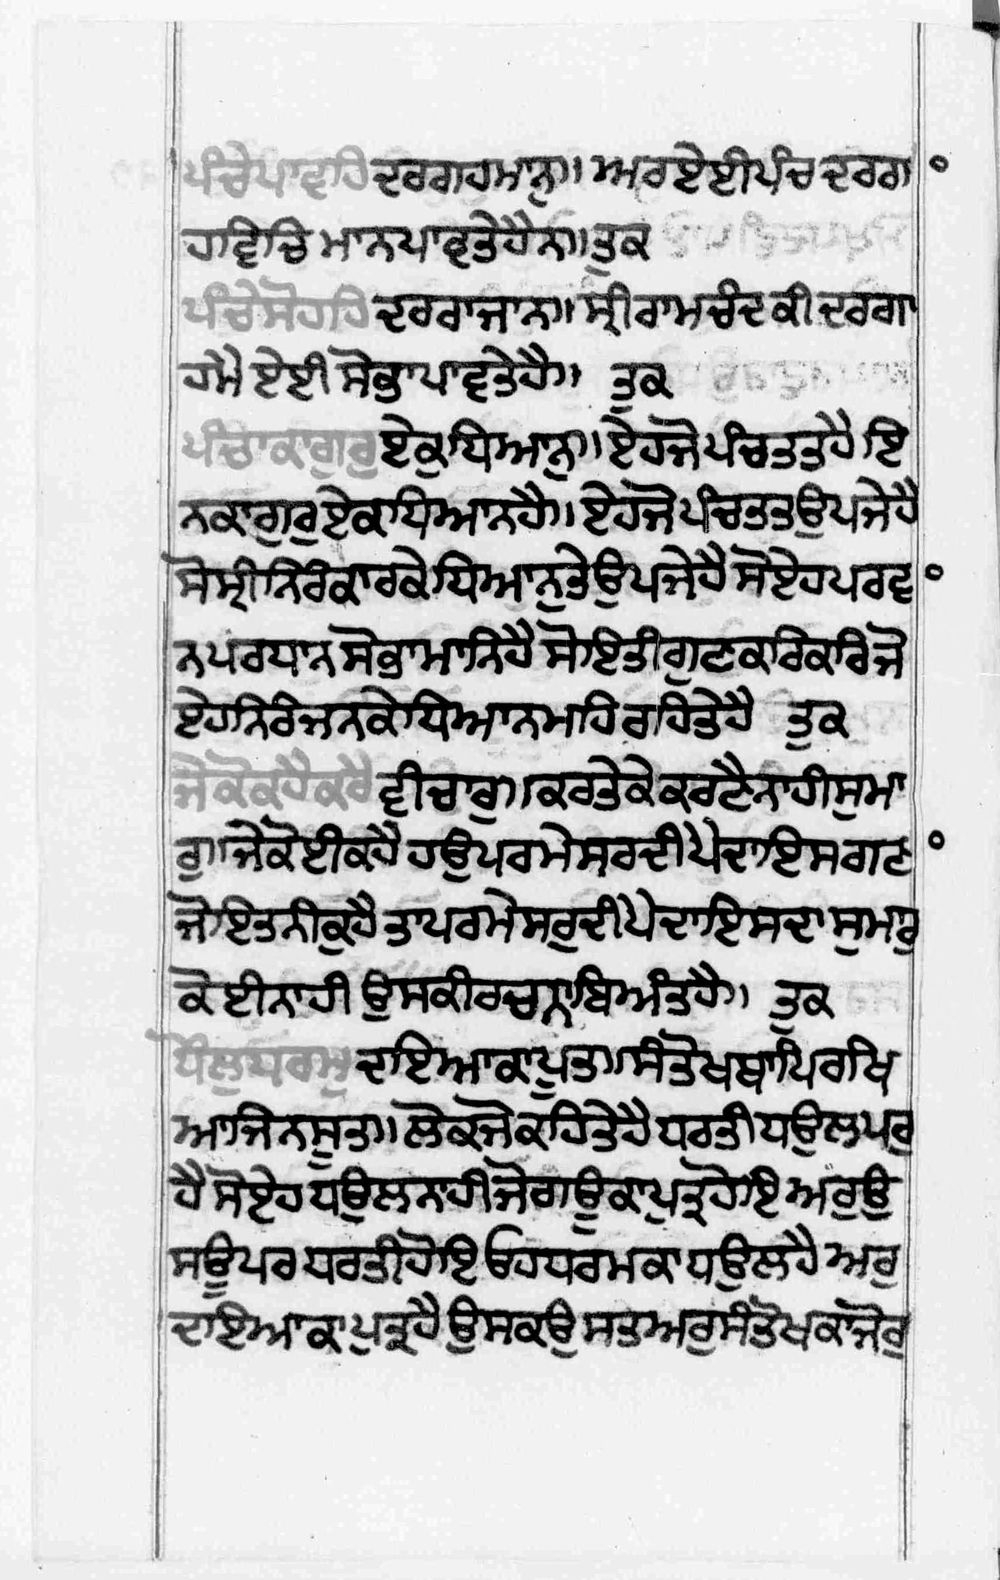 ਪੰਚੇ ਪਾਵਹਿ ਦਰਗਹ ਮਾਨੁ॥ ਅਰ ਏਈ ਪੰਚ ਦਰਗਾ
ਹ ਵਿਚਿ ਮਾਨ ਪਾਵਤੇ ਹੈਨ॥ ਤੁਕ
ਪੰਚੇ ਸੋਹਹਿ ਦਰਰਾਜਾਨ॥ ਸ੍ਰੀ ਰਾਮਚੰਦ ਕੀ ਦਰਗਾ
ਹ ਮੈ ਏਈ ਸੋਭਾ ਪਾਵਤੇ ਹੈ॥ ਤੁਕ
ਪੰਚਾ ਕਾ ਗੁਰੁ ਏਕੁ ਧਿਆਨੁ॥ ਏਹ ਜੋ ਪੰਚ ਤਤੁ ਹੈ ਇ
ਨ ਕਾ ਗੁਰੁ ਏਕਾ ਧਿਆਨ ਹੈ॥ ਏਹ ਜੋ ਪੰਚ ਤਤ ਉਪਜੇ ਹੈ
ਸੋ ਸ੍ਰੀ ਨਿਰੰਕਾਰ ਕੇ ਧਿਆਨੁ ਤੇ ਉਪਜੇ ਹੈ ਸੋ ਏਹ ਪਰਵ
ਨ ਪਰਧਾਨ ਸੋਭਾਮਾਨਿ ਹੈ ਸੋ ਇਤੀ ਗੁਣ ਕਰਿ ਕਰਿ ਜੋ
ਏਹ ਨਿਰੰਜਨ ਕੇ ਧਿਆਨ ਮਹਿ ਰਹਿਤੇ ਹੈ ਤੁਕ
ਜੇ ਕੋ ਕਹੈ ਕਰੈ ਵੀਚਾਰੁ॥ ਕਰਤੇ ਕੇ ਕਰਣੈ ਨਾਹੀ ਸੁਮਾ
ਰੁ॥ ਜੇ ਕੋਈ ਕਹੈ ਹਉ ਪਰਮੇਸਰ ਦੀ ਪੈਦਾਇਸ ਗਣ
ਜੋ ਇਤਨੀਕੁ ਹੈ ਤਾ ਪਰਮੇਸਰੁ ਦੀ ਪੈਦਾਇਸ ਦਾ ਸੁਮਰੁ
ਕੋਈ ਨਾਹੀ ਉਸ ਕੀ ਰਚਨਾ ਬਿਅੰਤ ਹੈ॥ ਤੁਕ
ਧੌਲੁ ਧਰਮੁ ਦਇਆ ਕਾ ਪੂਤ॥ ਸੰਤੋਖ ਥਾਪਿ ਰਖਿ
ਆ ਜਿਨ ਸੂਤ॥ ਲੋਕ ਜੋ ਕਹਿਤੇ ਹੈ ਧਰਤੀ ਧਉਲ ਪਰੁ
ਹੈ ਸੋ ਏਹ ਧਉਲ ਨਾਹੀ ਜੋ ਗਊ ਕਾ ਪੁਤ੍ਰ ਹੋਇ ਅਰੁ ਉ
ਸ ਊਪਰ ਧਰਤੀ ਹੋਇ ਓਹ ਧਰਮ ਕਾ ਧਉਲ ਹੈ ਅਰੁ
ਦਇਆ ਕਾ ਪੁਤ੍ਰ ਹੈ ਉਸ ਕਉ ਸਤ ਅਰੁ ਸੰਤੋਖ ਕਾ ਜੋਰੁ